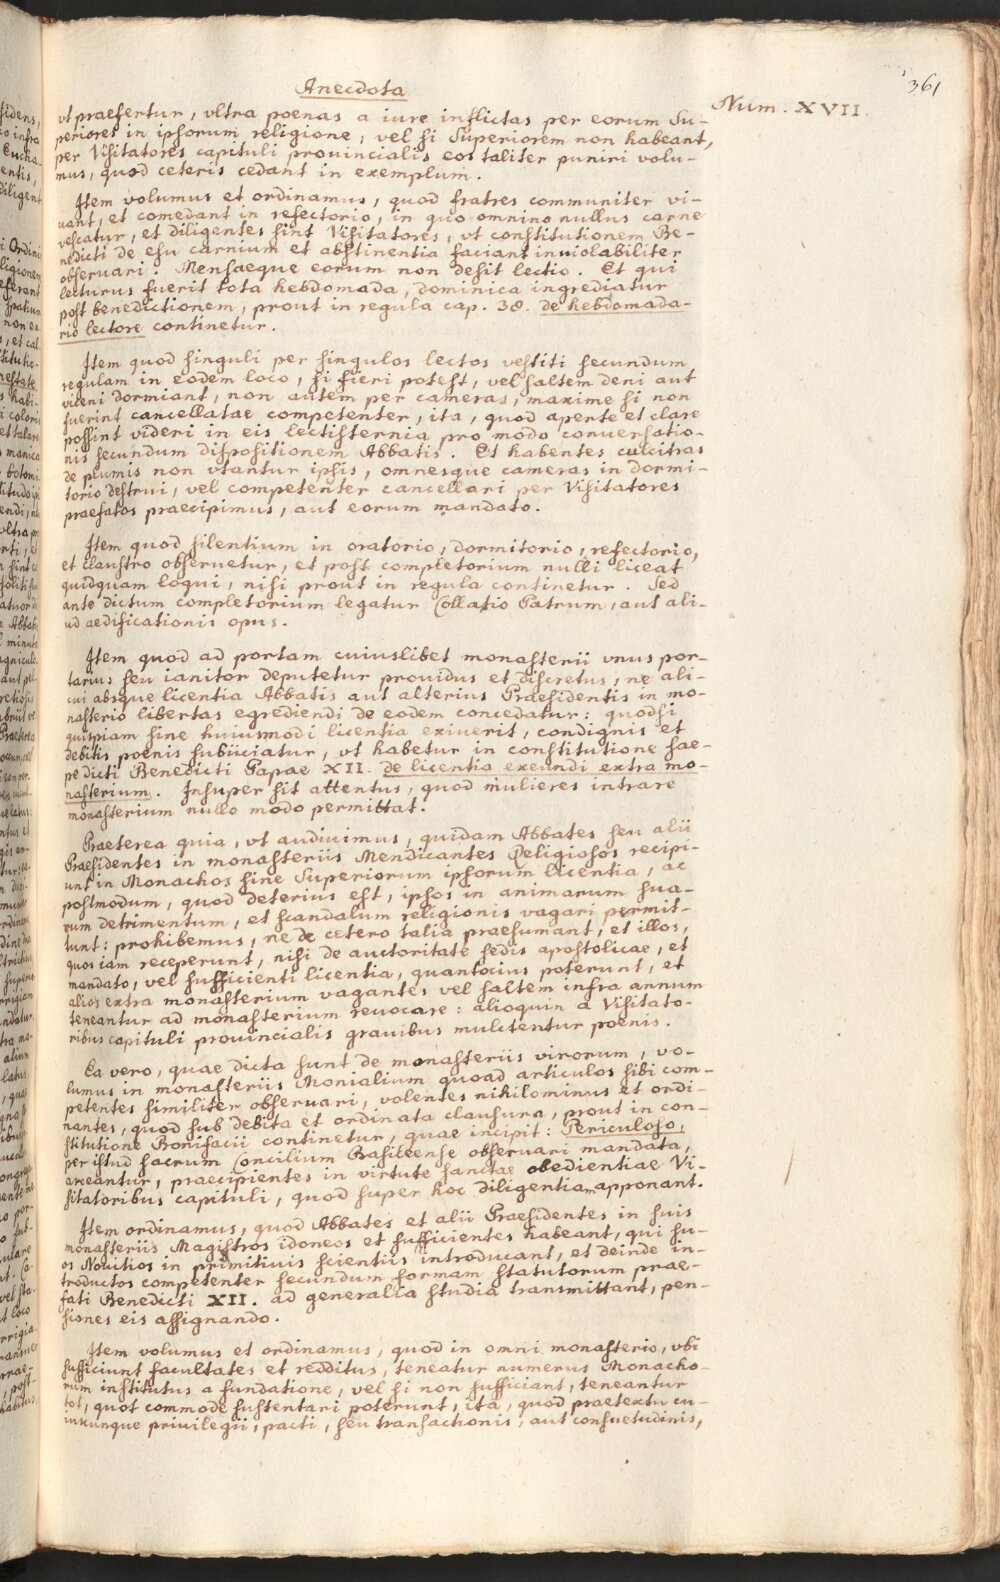 361
Anecdota
Num. XVII.
vt praefertur, vltra poenas a iure inflictas per eorum Su-
periores in ipsorum religione, vel si Superiorem non habeant,
per Visitatores capituli prouincialis eos taliter puniri volu-
mus, quod ceteris cedant in exemplum.
Item volumus et ordinamus, quod fratres communiter vi-
uant, et comedant in refectorio, in quo omnino nullus carne
vescatur, et diligentes sint Visitatores, vt constitutionem Be-
nedicti de esu carnium et abstinentia faciant inuiolabiliter
obseruari. Mensaeque eorum non desit lectio. Et qui
lecturus fuerit tota hebdomada, dominica ingrediatur
post benedictionem, prout in regula cap. 38. de hebdomada-
rio lectore continetur.
Item quod singuli per singulos lectos vestiti secundum
regulam in eodem loco, si fieri potest, vel saltem deni aut
viceni dormiant, non autem per cameras, maxime si non
fuerint cancellatae competenter, ita, quod aperte et clare
possint videri in eis lectisternia pro modo conuersatio-
nis secundum dispositionem Abbatis. Et habentes culcitras
de plumis non vtantur ipsis, omnesque cameras in dormi-
torio destrui, vel competenter cancellari per Visitatores
praefatos praecipimus, aut eorum mandato.
Item quod silentium in oratorio, dormitorio, refectorio,
et claustro obseruetur, et post completorium nulli liceat
quidquam loqui, nisi prout in regula continetur. Sed
ante dictum completorium legatur Collatio Patrum, aut ali-
ud aedificationis opus.
Item quod ad portam cuiuslibet monasterii vnus por-
tarius seu ianitor deputetur prouidus et discretus, ne ali-
cui absque licentia Abbatis aut alterius Praesidentis in mo-
nasterio libertas egrediendi de eodem concedatur: quodsi
quispiam sine huiusmodi licentia exiuerit, condignis et
debitis poenis subiiciatur, vt habetur in constitutione sae-
pe dicti Benedicti Papae XII. de licentia exeundi extra mo-
nasterium. Insuper sit attentus, quod mulieres intrare
monasterium nullo modo permittat.
Praeterea quia, vt audiuimus, quidam Abbates seu alii
Praesidentes in monasteriis Mendicantes Religiosos recipi-
unt in Monachos sine Superiorum ipsorum licentia, ac
postmodum, quod deterius est, ipsos in animarum sua-
rum detrimentum, et scandalum religionis vagari permit-
tunt: prohibemus, ne de cetero talia praesumant, et illos,
quos iam receperunt, nisi de auctoritate sedis apostolicae, et
mandato, vel sufficienti licentia, quantocius poterunt, et
alios extra monasterium vagantes vel saltem infra annum
teneantur ad monasterium reuocare: alioquin a Visitato-
ribus capituli prouincialis grauibus mulctentur poenis.
Ea vero, quae dicta sunt de monasteriis virorum, vo-
lumus in monasteriis Monialium quoad articulos sibi com-
petentes similiter obseruari, volentes nihilominus et ordi-
nantes, quod sub debita et ordinata clausura, prout in con-
stitutione Bonifacii continetur, quae incipit: Periculoso,
per istud sacrum Concilium Basileense obseruari mandata,
arceantur, praecipientes in virtute sanctae obedientiae Vi-
sitatoribus capituli, quod super hoc diligentiam apponant.
Item ordinamus, quod Abbates et alii Praesidentes in suis
monasteriis Magistros idoneos et sufficientes habeant, qui su-
os Nouitios in primitiuis scientiis introducant, et deinde in-
troductos competenter secundum formam statutorum prae-
fati Benedicti XII. ad generalia studia transmittant, pen-
siones eis assignando.
Item volumus et ordinamus, quod in omni monasterio, vbi
sufficiunt facultates et redditus, teneatur numerus Monacho-
rum institutus a fundatione, vel si non sufficiant, teneantur
tot, quot commode sustentari poterunt, ita, quod praetextu cu-
iuscunque priuilegii, pacti, seu transactionis, aut consuetudinis,